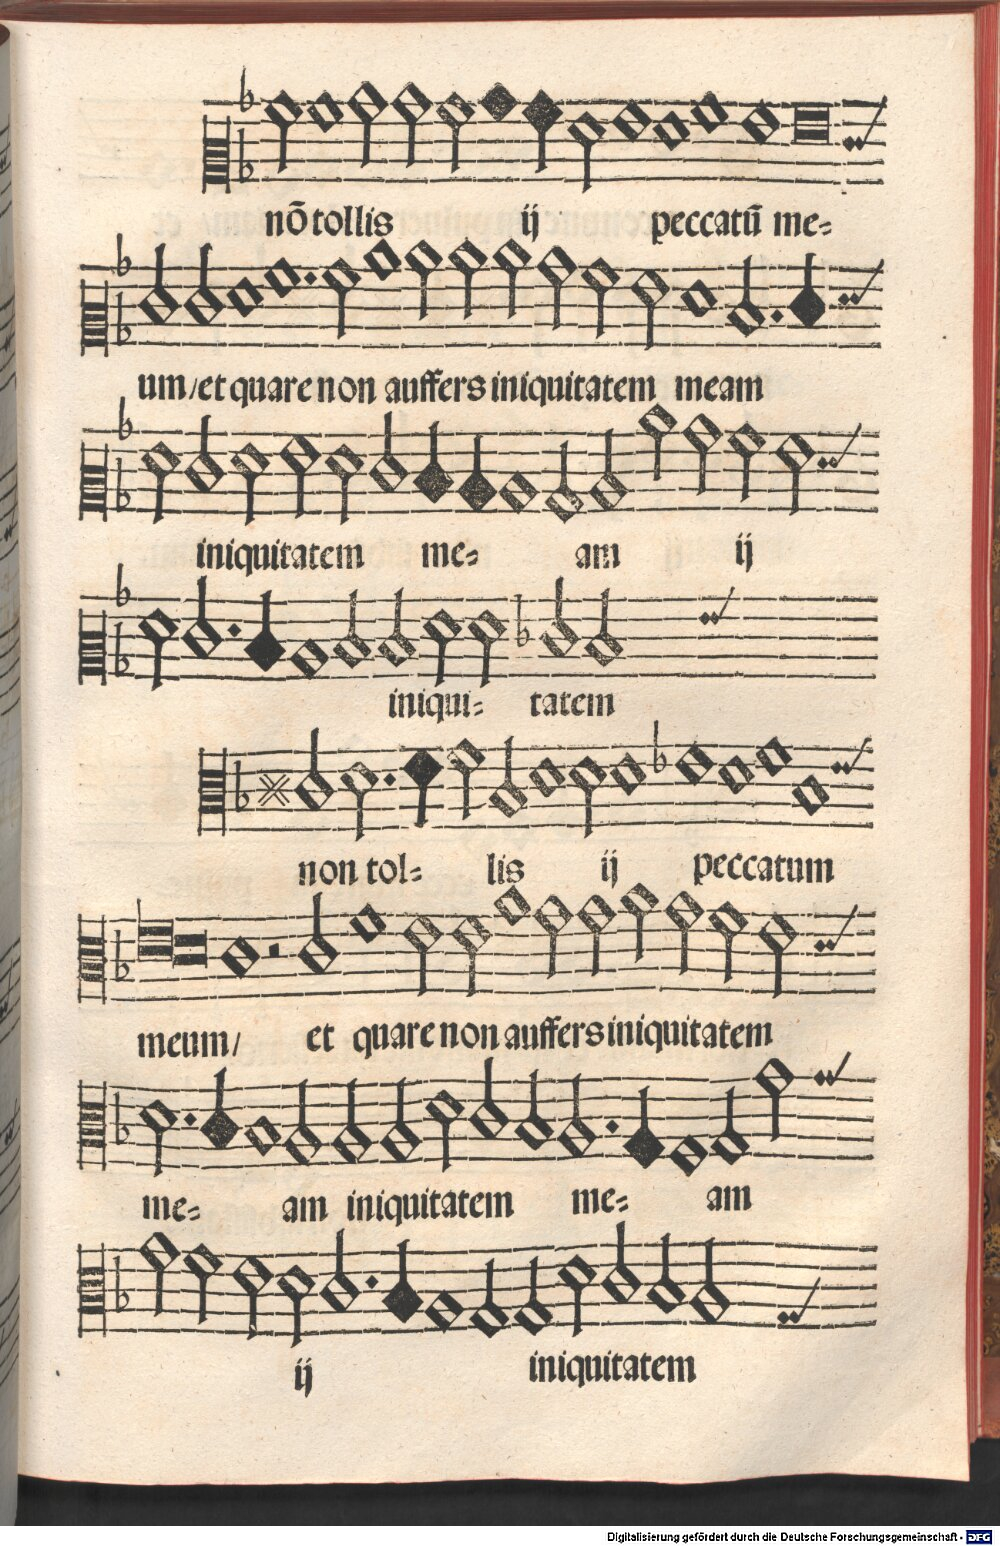 nō tollis ij peccatū me-
um/et quare non auffers iniquitatem meam
iniquitatem me- am ij
iniqui- tatem
non tol- lis ij peccatum
meum/ et quare non auffers iniquitatem
me- am iniquitatem me- am
ij iniquitatem
Digitalisierung gefördert durch die Deutsche Forschungsgemeinschaft - DFG